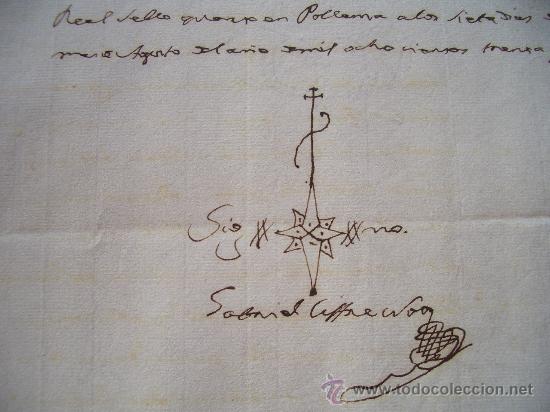 Real Sello quarto en Pollensa a los siete dias d
mes Agosto del año de mil ocho cientos trenta
Sig no.
Gabriel Cifre Not
www.todocoleccion.net